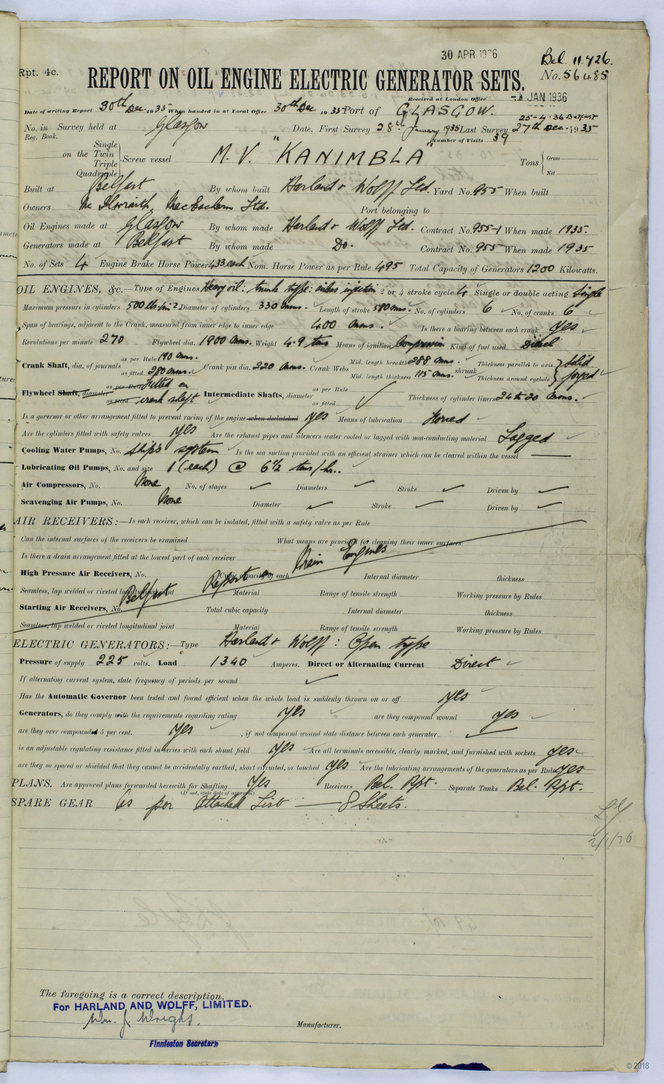 30 APR 1936
Bel. 11726.
Rpt. 4c.
REPORT ON OIL ENGINE ELECTRIC GENERATOR SETS.
No. 56485
Received at London Office
JAN 1936
Date of writing Report 30th Dec. 1935 When handed in at Local Office 30th Dec 1935 Port of GLASGOW.
25-4-36 Belfast
No. in Survey held at Glasgow Date, First Survey 28th January 1935 Last Survey 27th Dec. 1935
Reg. Book.
Number of Visits 39
Single
on the Twin
Triple
Quadruple
Screw vessel M.V. "KANIMBLA"
Tons
Gross
Net
Built at Belfast By whom built Harland & Wolff Ltd. Yard No. 955 When built
Owners Mc Ilwraith MacEachern Ltd. Port belonging to
Oil Engines made at Glasgow By whom made Harland & Wolff Ltd. Contract No. 955-1 When made 1935.
Generators made at Belfast By whom made Do. Contract No. 955 When made 1935
No. of Sets 4 Engine Brake Horse Power 433 each Nom. Horse Power as per Rule 495 Total Capacity of Generators 1200 Kilowatts.
OIL ENGINES, &c.—Type of Engines Heavy oil: trunk type: airless injection 2 or 4 stroke cycle 4 Single or double acting Single
Maximum pressure in cylinders 500 lbs/in2 Diameter of cylinders 330 mms. Length of stroke 580 mms. No. of cylinders 6 No. of cranks 6
Span of bearings, adjacent to the Crank, measured from inner edge to inner edge 400 mms. Is there a bearing between each crank yes
Revolutions per minute 270 Flywheel dia. 1900 mms. Weight 4.9 tons Means of ignition Compression Kind of fuel used Diesel
Crank Shaft, dia. of journals as per Rule 190 mms. as fitted 250 mms. Crank pin dia. 220 mms. Crank Webs Mid. length breadth 288 mms. Mid. length thickness 115 mms. shrunk Thickness parallel to axis Thickness around eyehole Solid forged
Flywheel Shaft, diameter as per Rule Fitted on as fitted crank shaft Intermediate Shafts, diameter as per Rule as fitted ✓ Thickness of cylinder liners 24 to 20 mms.
Is a governor or other arrangement fitted to prevent racing of the engine when declutched yes Means of lubrication Forced
Are the cylinders fitted with safety valves yes Are the exhaust pipes and silencers water cooled or lagged with non-conducting material Lagged
Cooling Water Pumps, No. Ship's system Is the sea suction provided with an efficient strainer which can be cleared within the vessel
Lubricating Oil Pumps, No. and size 1 (each) @ 6½ tons/hr.
Air Compressors, No. None No. of stages ✓ Diameters ✓ Stroke ✓ Driven by ✓
Scavenging Air Pumps, No. None Diameter ✓ Stroke ✓ Driven by ✓
AIR RECEIVERS:—Is each receiver, which can be isolated, fitted with a safety valve as per Rule
Can the internal surfaces of the receivers be examined What means are provided for cleaning their inner surfaces
Is there a drain arrangement fitted at the lowest part of each receiver
Belfast Report on Main Engines
High Pressure Air Receivers, No. Cubic capacity of each Internal diameter thickness
Seamless, lap welded or riveted longitudinal joint Material Range of tensile strength Working pressure by Rules
Starting Air Receivers, No. Total cubic capacity Internal diameter thickness
Seamless, lap welded or riveted longitudinal joint Material Range of tensile strength Working pressure by Rules
ELECTRIC GENERATORS:—Type Harland & Wolff: Open type
Pressure of supply 225 volts. Load 1340 Amperes. Direct or Alternating Current Direct
If alternating current system, state frequency of periods per second ✓
Has the Automatic Governor been tested and found efficient when the whole load is suddenly thrown on or off yes
Generators, do they comply with the requirements regarding rating yes are they compound wound yes
are they over compounded 5 per cent. yes, if not compound wound state distance between each generator
is an adjustable regulating resistance fitted in series with each shunt field yes Are all terminals accessible, clearly marked, and furnished with sockets yes
are they so spaced or shielded that they cannot be accidentally earthed, short circuited, or touched yes Are the lubricating arrangements of the generators as per Rule yes
PLANS. Are approved plans forwarded herewith for Shafting Yes Receivers Bel. Rpt. Separate Tanks Bel. Rpt.
(If not, state date of approval)
SPARE GEAR As per attached List — 8 Sheets.
The foregoing is a correct description,
For HARLAND AND WOLFF, LIMITED.
Wm. J. Wright.
Manufacturer.
Finnieston Secretary
© 2018